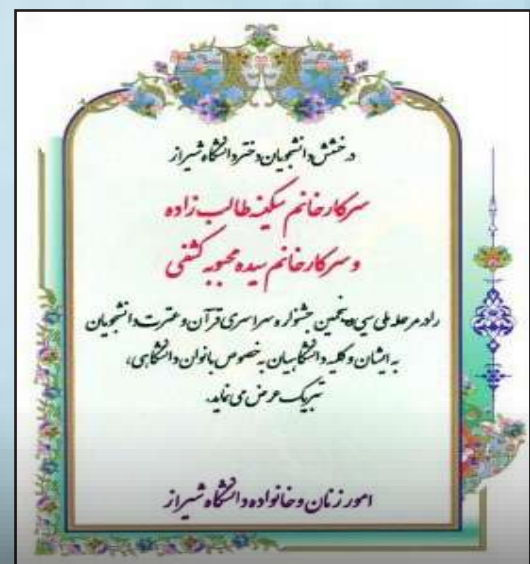 درخشش دانشجویان دختر دانشگاه شیراز
سرکار خانم سکینه طالب زاده
و سرکار خانم سیده محبوبه کشفی
را در مرحله ملی سی و پنجمین جشنواره سراسری قرآن و عترت دانشجویان
به ایشان و کلیه دانشگاهیان به خصوص بانوان دانشگاهی،
تبریک عرض می نماید.
امور زنان و خانواده دانشگاه شیراز